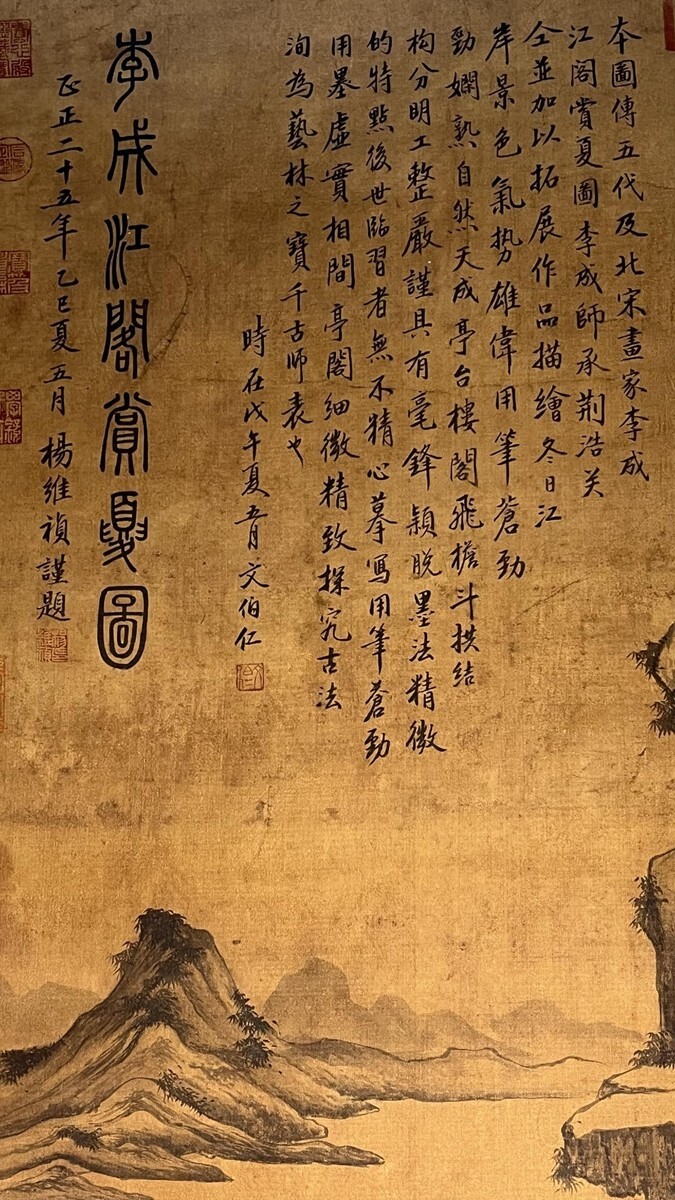 本圖傳五代及北宋畫家李成
江閣賞夏圖李成師承荆浩关
仝並加以拓展作品描繪冬日江
岸景色氣势雄偉用筆蒼勁
勁嫻熟自然天成亭台樓閣飛檐斗拱结
构分明工整嚴謹具有毫鋒穎脱墨法精微
的特點後世臨習者無不精心摹寫用筆蒼勁
用墨虚實相間亭閣细微精致探究古法
洵為藝林之寶千古师表也
時在戊午夏五月文伯仁
李成江閣賞夏圖
正二十五年乙巳夏五月楊維禎謹題